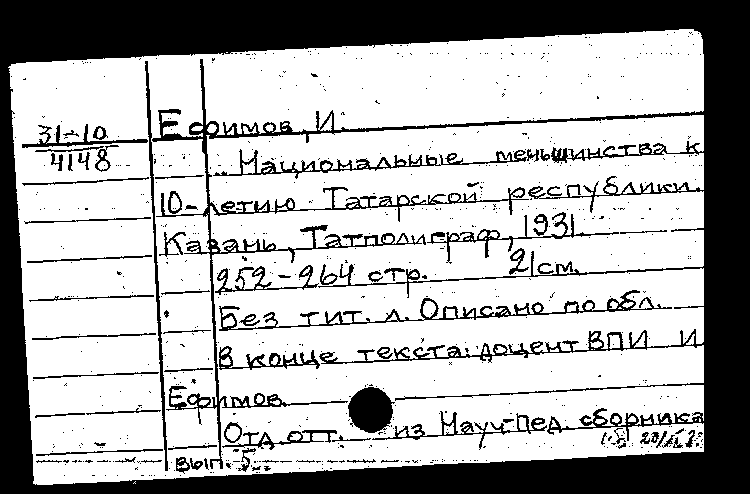 31-10
4148
Ефимов, И.
.. Национальные меньшинства к
10-летию Татарской республики.
Казань, Татполиграф, 1931.
252-264 стр. 21 см.
Без тит. л. Описано по обл.
В конце текста: доцент ВПИ И
Ефимов.
Отд. отт. из Науч-пед. сборника
вып. 5.